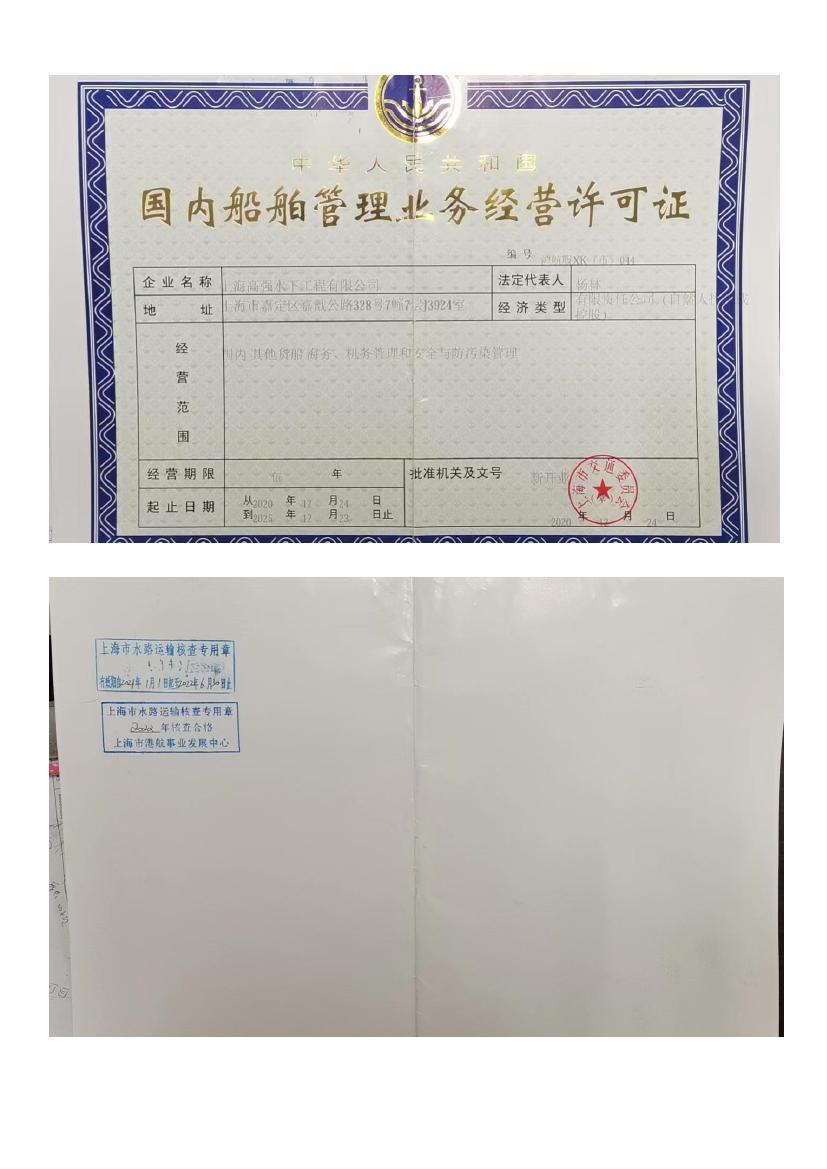 中华人民共和国
国内船舶管理业务经营许可证
编号 沪航服XK(市)044
企业名称 上海高强水下工程有限公司 法定代表人 杨林
地址 上海市嘉定区嘉戬公路328号7幢7层J3924室 经济类型 有限责任公司(自然人投资或
控股)
经营范围 国内 其他货船 海务、机务管理和安全与防污染管理
经营期限 伍 年 批准机关及文号 新开业
起止日期 从2020年12月24日
到2025年12月23日止
上海市交通委员会
2020年12月24日
上海市水路运输核查专用章
有效期自2021年1月1日起至2022年6月30日止
上海市水路运输核查专用章
2022年核查合格
上海市港航事业发展中心